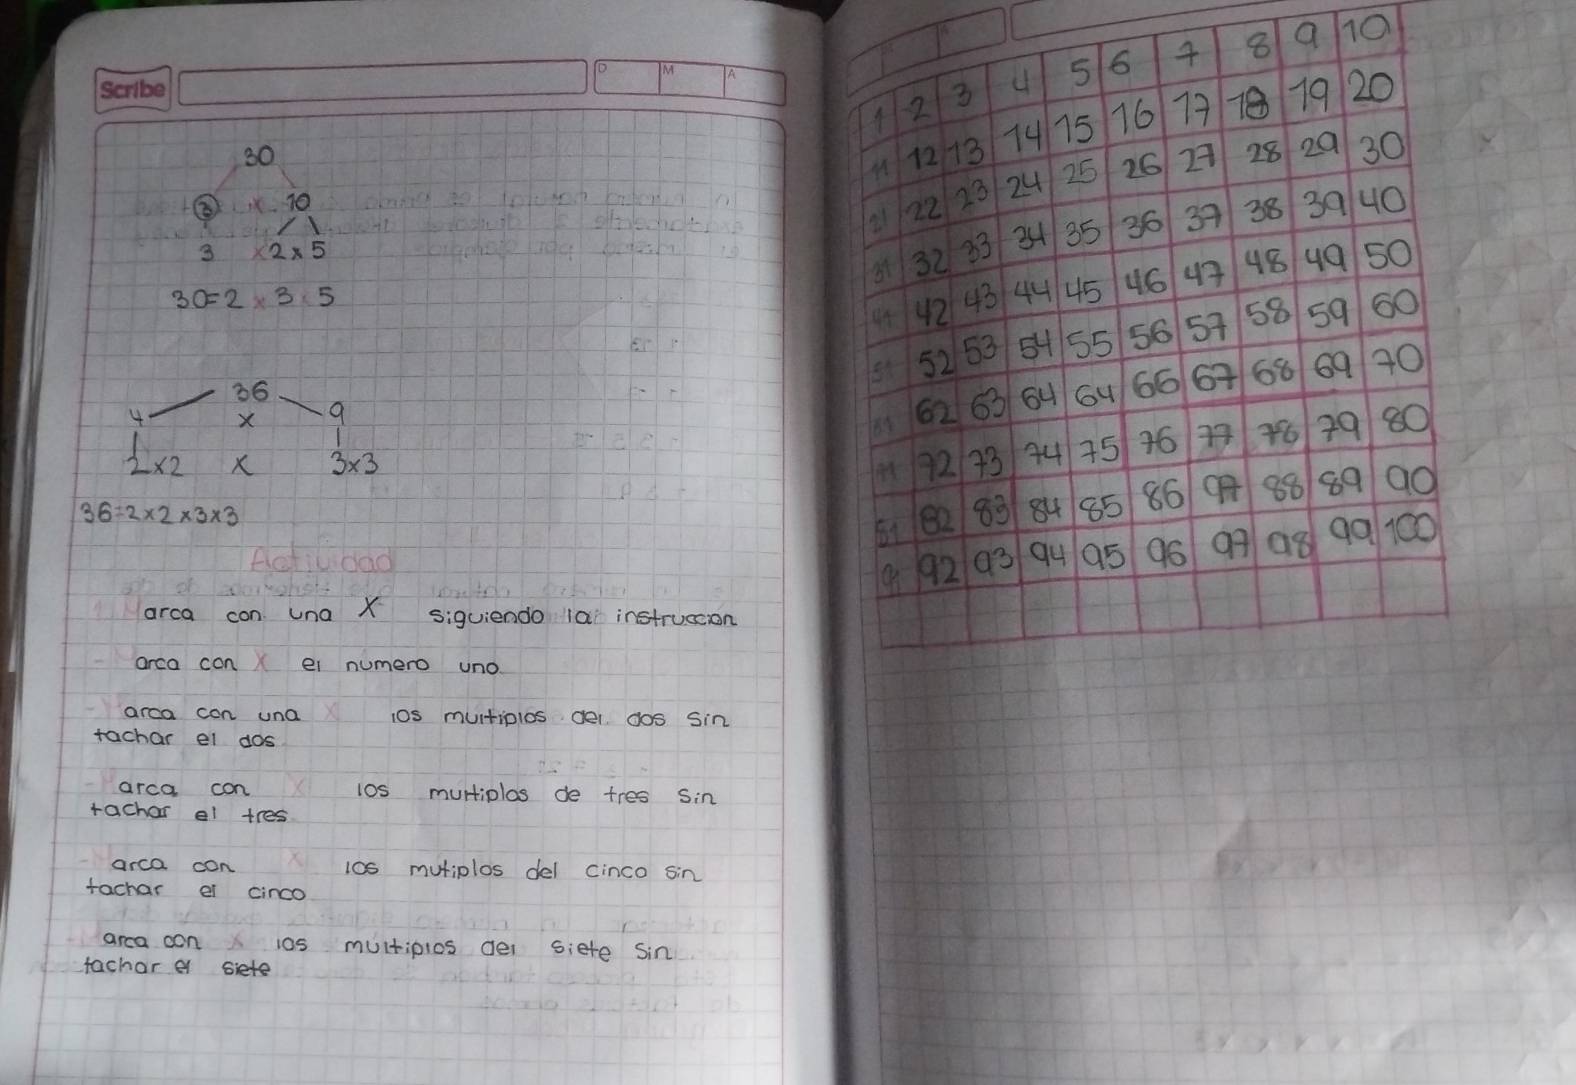 Scribe
D M A
30
3 x 10
3 x 2 x 5
30=2 x 3 x 5
36
4 x 9
2x2 x 3x3
36=2x2x3x3
Actividad
Marca con una X siguiendo la instruccion
- Marca con X el numero uno
- Marca con una X los multiplos del dos sin
tachar el dos
- Marca con X los multiplos de tres sin
tachar el tres
- Marca con X los mutiplos del cinco sin
tachar el cinco
- Marca con X los multiplos del siete sin
tachar el siete
1 2 3 4 5 6 7 8 9 10
11 12 13 14 15 16 17 18 19 20
21 22 23 24 25 26 27 28 29 30
31 32 33 34 35 36 37 38 39 40
41 42 43 44 45 46 47 48 49 50
51 52 53 54 55 56 57 58 59 60
61 62 63 64 64 66 67 68 69 70
71 72 73 74 75 76 77 78 79 80
81 82 83 84 85 86 97 88 89 90
9 92 93 94 95 96 97 98 99 100